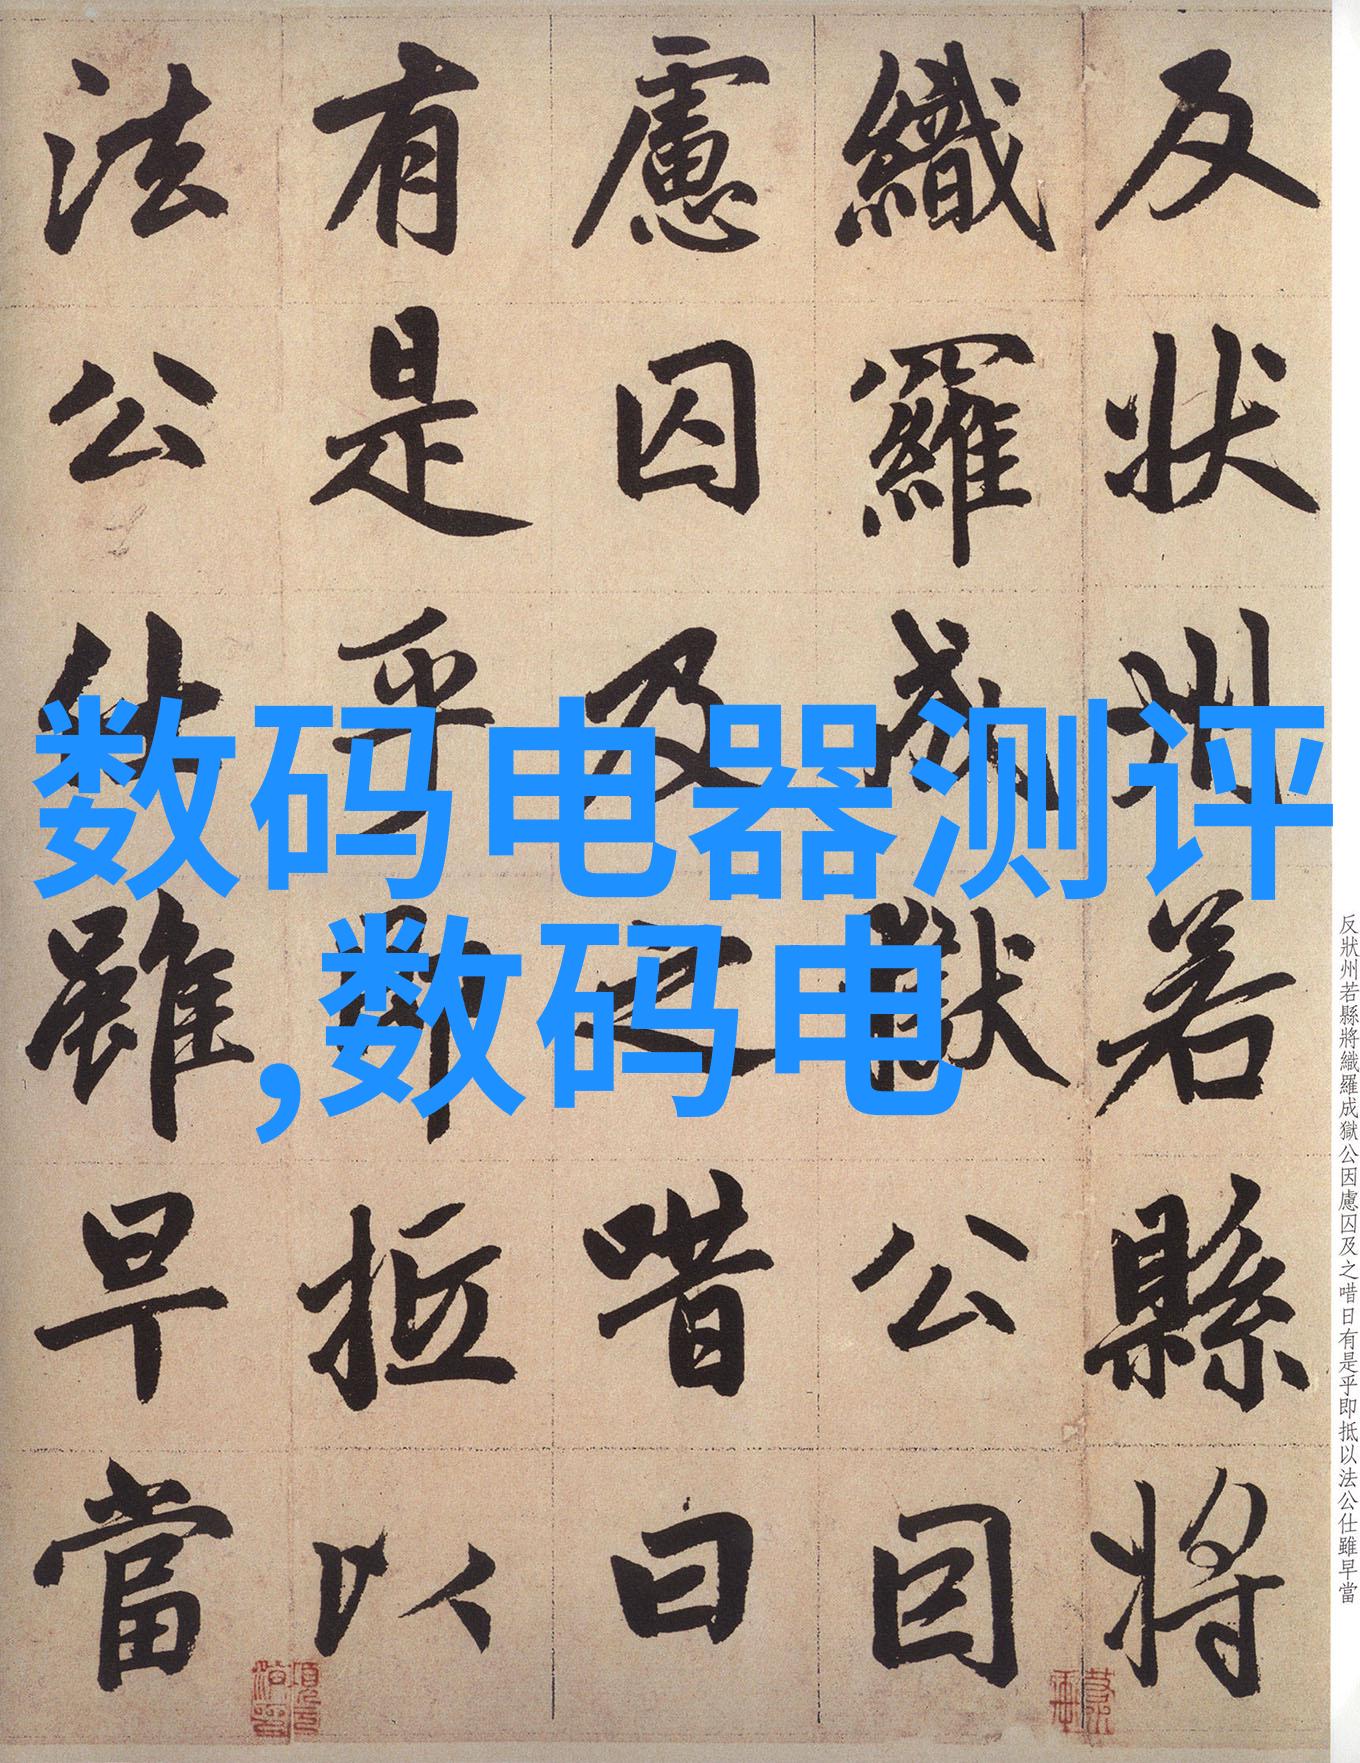 反狀州若縣將
織羅成獄公因
慮囚及之唶曰
有是乎即抵以
法公仕雖早當
数码电器测评
,数码电
反狀州若縣將織羅成獄公因慮囚及之唶日有是乎即抵以法公仕雖早當